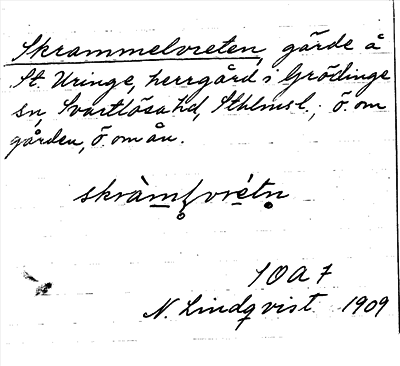 Skrammelvreten, gärde å
St. Uringe, herrgård i Grödinge
sn, Svartlösa hd, Sthlmsl.; ö. om
gården, ö. om ån.
skràmḷvrétn̥
SOA 7
N. Lindqvist 1909